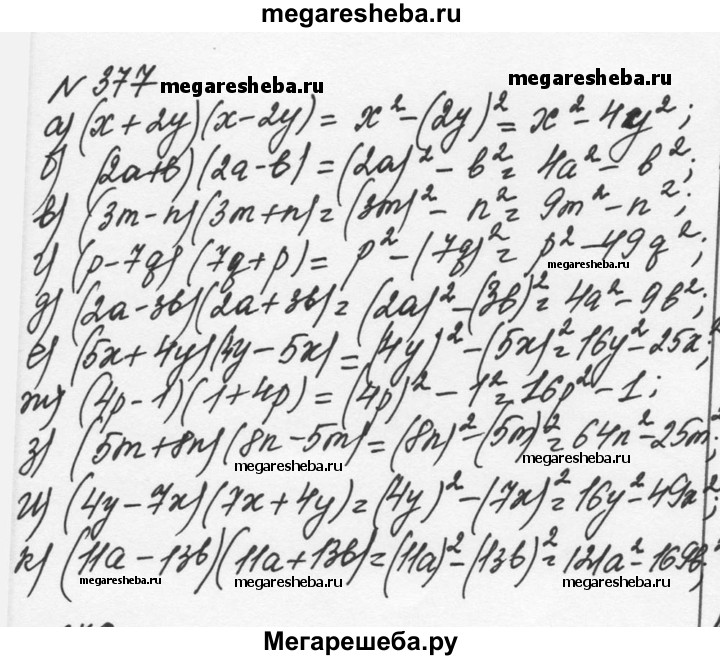 megaresheba.ru
N 377 megaresheba.ru megaresheba.ru
а) (x+2y)(x-2y) = x²-(2y)² = x²-4y²;
б) (2a+b)(2a-b) = (2a)²-b² = 4a²-b²;
в) (3m-n)(3m+n) = (3m)²-n² = 9m²-n²;
г) (p-7q)(7q+p) = p²-(7q)² = p²-49q²;
megaresheba.ru
д) (2a-3b)(2a+3b) = (2a)²-(3b)² = 4a²-9b²;
е) (5x+4y)(4y-5x) = (4y)²-(5x)² = 16y²-25x²;
ж) (4p-1)(1+4p) = (4p)²-1² = 16p²-1;
з) (5m+8n)(8n-5m) = (8n)²-(5m)² = 64n²-25m²;
megaresheba.ru megaresheba.ru
и) (4y-7x)(7x+4y) = (4y)²-(7x)² = 16y²-49x²;
к) (11a-13b)(11a+13b) = (11a)²-(13b)² = 121a²-169b²;
megaresheba.ru megaresheba.ru megaresheba.ru
Мегарешеба.ру